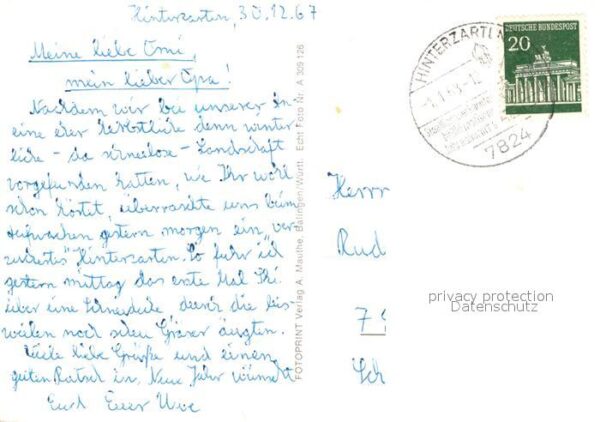 Hinterzarten, 30.12.67
Meine liebe Omi,
mein lieber Opa!
Nachdem wir bei unserer An-
eine eher herbstliche denn winter
liche - da schneelose - Landschaft
vorgefunden hatten, wie Ihr wohl
schon hörtet, überraschte uns beim
Aufwachen gestern morgen ein "ver
zuckertes" Hinterzarten. So fuhr ich
gestern mittag das erste Mal Ski
über eine Schneedecke durch die bis-
weilen noch schon Gräser äugten.
Viele liebe Grüße und einen
guten Rutsch ins Neue Jahr wünscht
Euch Euer Uwe
FOTOPRINT Verlag A. Mauthe, Balingen/Württ. Echt Foto Nr. A 309 126
HINTERZARTEN
7824
DEUTSCHE BUNDESPOST
20
Herrn
Rud
Sch
privacy protection
Datenschutz